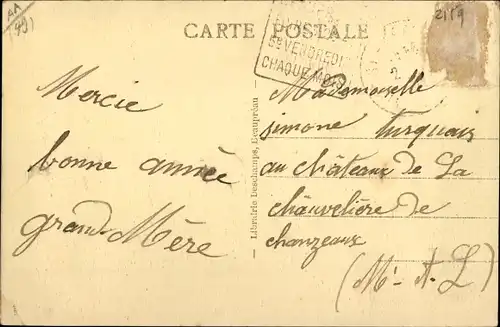 AA
1491
CARTE POSTALE
2119
VENDREDI
CHAQUE MOIS
Mercie
bonne année
grand-Mère
Librairie Deschamps, Beaupréau
Mademoiselle
simone turquais
au châteaux de La
chauvelière de
chanzeaux
(M-et-L)